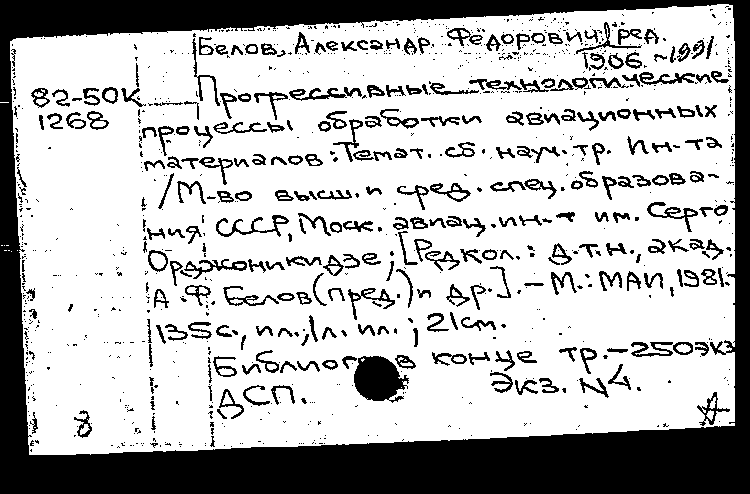 Белов, Александр Федорович, ред.
1906 - 1991
82-50К
1268
Прогрессивные технологические
процессы обработки авиационных
материалов: Темат. сб. науч. тр. Ин-та
/М-во высш. и сред. спец. образова-
ния СССР, Моск. авиац. ин-т им. Серго
Орджоникидзе; [Редкол.: д.т.н., акад.
А.Ф. Белов (пред.) и др.]. - М.: МАИ, 1981.-
135с., ил., 1л. ил.; 21см.
Библиогр в конце тр.-250экз
ДСП. Экз. N4.
8